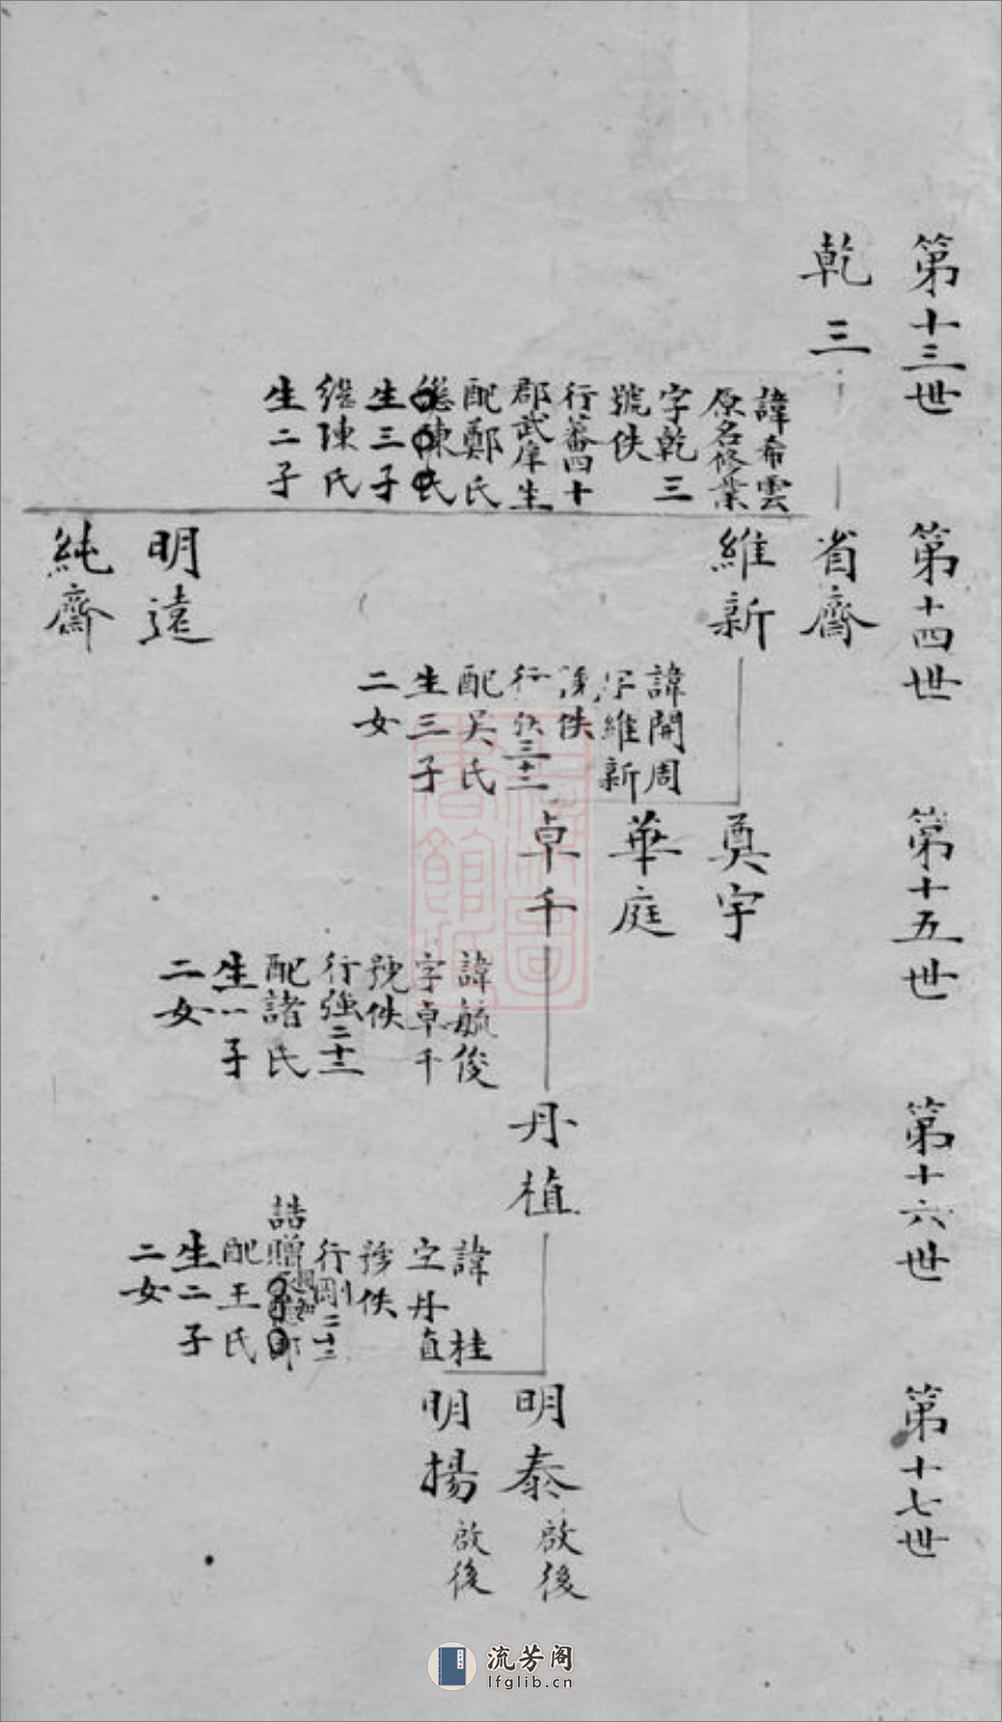 第十三世
乾三
諱希雲
原名修業
字乾三
號佚
行蕃四十
郡武庠生
配鄭氏
繼陳氏
生三子
繼陳氏
生二子
第十四世
省齋
維新
明遠
純齋
諱開周
字維新
號佚
行 三十二
配吳氏
生三子
二女
第十五世
奠宇
華庭
卓千
諱毓俊
字卓千
號佚
行強二十三
配諸氏
生一子
二女
第十六世
丹植
諱桂
字丹直
號佚
行剛二十三
誥贈 郎
配王氏
生二子
二女
第十七世
明泰
啟後
明揚
啟後
流芳阁
lfglib.cn